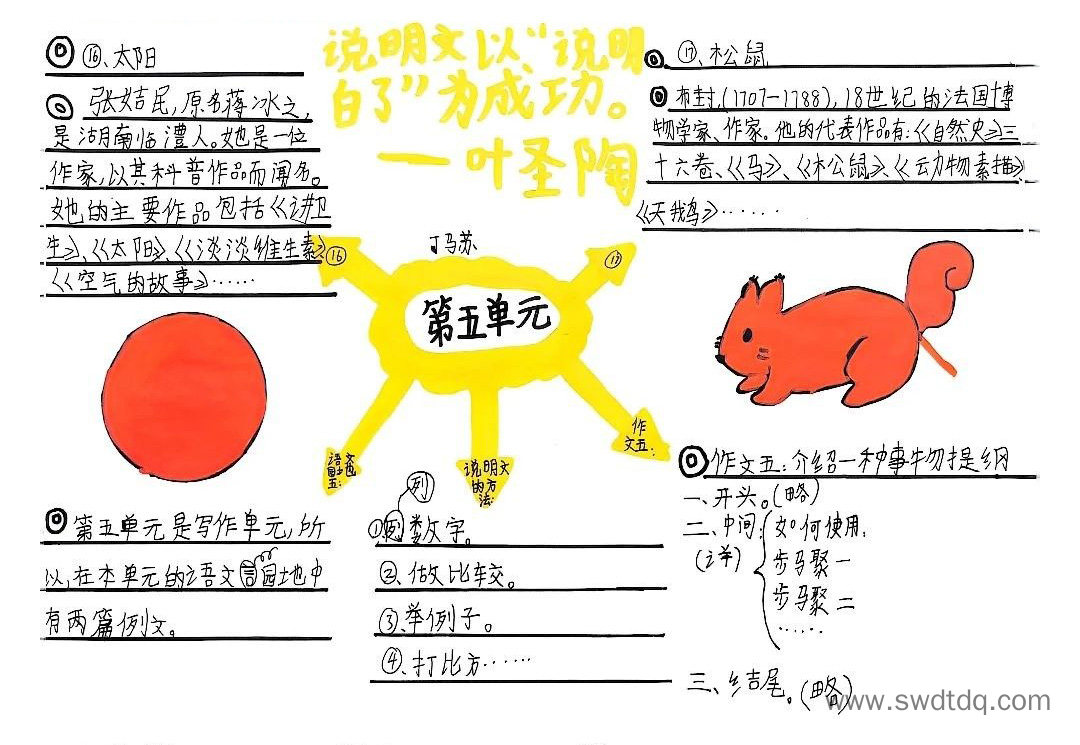 ⑯、太阳
张姞民,原名蒋冰之,
是湖南临澧人。她是一位
作家,以其科普作品而闻名。
她的主要作品包括《讲卫
生》、《太阳》、《谈谈维生素》
《空气的故事》……
说明文以“说明
白了”为成功。
——叶圣陶
⑰、松鼠
布封,(1707-1788),18世纪的法国博
物学家、作家。他的代表作品有:《自然史》三
十六卷、《马》、《松鼠》、《动物素描》
《天鹅》……
丁马苏
⑯
⑰
第五单元
语文园地五:
说明文
的方
法:
作
文五:
第五单元是写作单元,所
以,在本单元的语文园地中
有两篇例文。
列
①、列数字。
②、做比较。
③、举例子。
④、打比方……
作文五:介绍一种事物提纲
一、开头。(略)
二、中间:
(详)
如何使用:
步骤一
步骤二
……
三、结尾。(略)
www.swdtdq.com